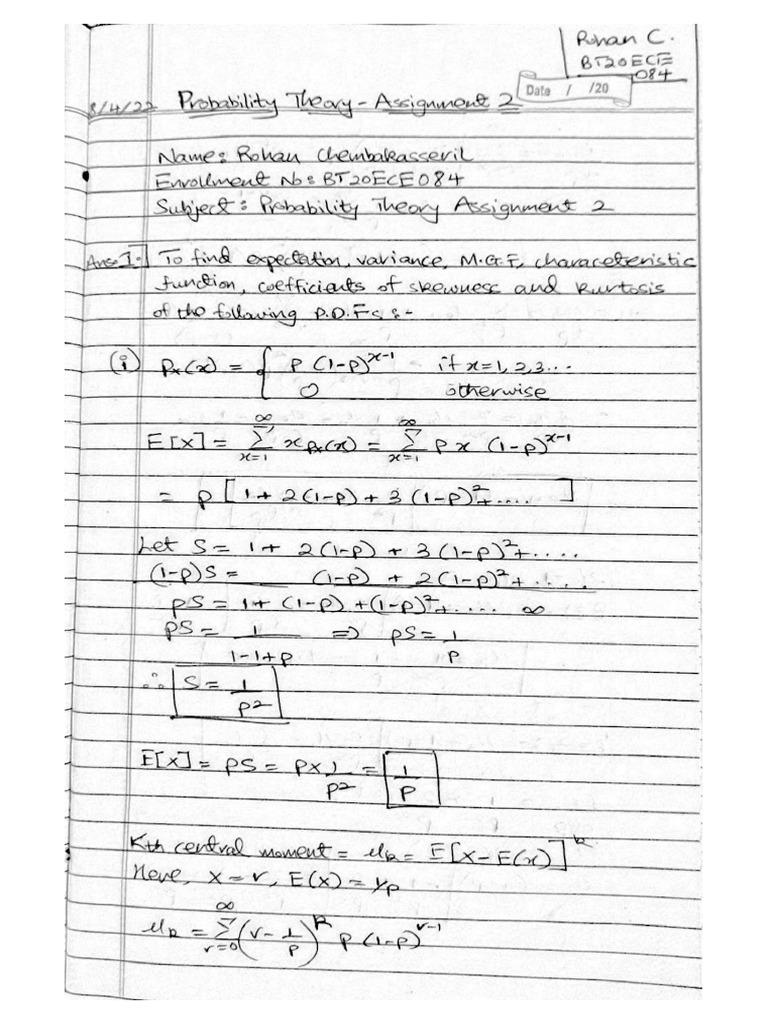 Rohan C.
BT20ECE
084
Date / /20
8/4/22 Probability Theory - Assignment 2
Name: Rohan Chembakasseril
Enrollment No: BT20ECE084
Subject: Probability Theory Assignment 2
Ans 1. To find expectation, variance, M.G.F, characteristic
function, coefficients of skewness and kurtosis
of the following P.D.Fs :-
(i) Pₓ(x) = { p (1-p)^(x-1) if x=1,2,3...
0 otherwise
E[X] = ∞Σx=1 x pₓ(x) = ∞Σx=1 p x (1-p)^(x-1)
= p [1 + 2(1-p) + 3(1-p)² + .... ]
Let S = 1 + 2(1-p) + 3(1-p)² + ....
(1-p)S = (1-p) + 2(1-p)² + ....
pS = 1 + (1-p) + (1-p)² + .... ∞
pS = 1/(1-1+p) ⇒ pS = 1/p
∴ S = 1/p²
E[X] = pS = p × 1/p² = 1/p
Kth central moment = μk = E[X - E(x)]^k
Here, X = r, E(X) = 1/p
μk = ∞Σr=0 (r - 1/p)^k p (1-p)^(r-1)